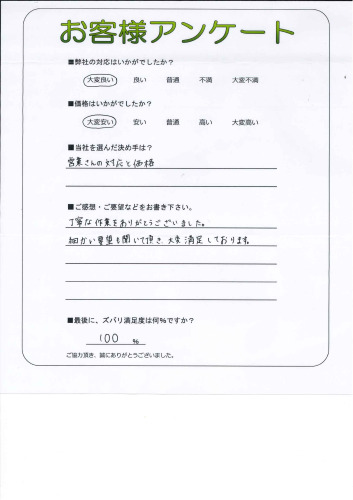 お客様アンケート
■弊社の対応はいかがでしたか?
大変良い 良い 普通 不満 大変不満
■価格はいかがでしたか?
大変安い 安い 普通 高い 大変高い
■当社を選んだ決め手は?
営業さんの対応と価格
■ご感想・ご要望などをお書き下さい。
丁寧な作業をありがとうございました。
細かい要望も聞いて頂き、大変満足しております。
■最後に、ズバリ満足度は何%ですか?
100 %
ご協力頂き、誠にありがとうございました。